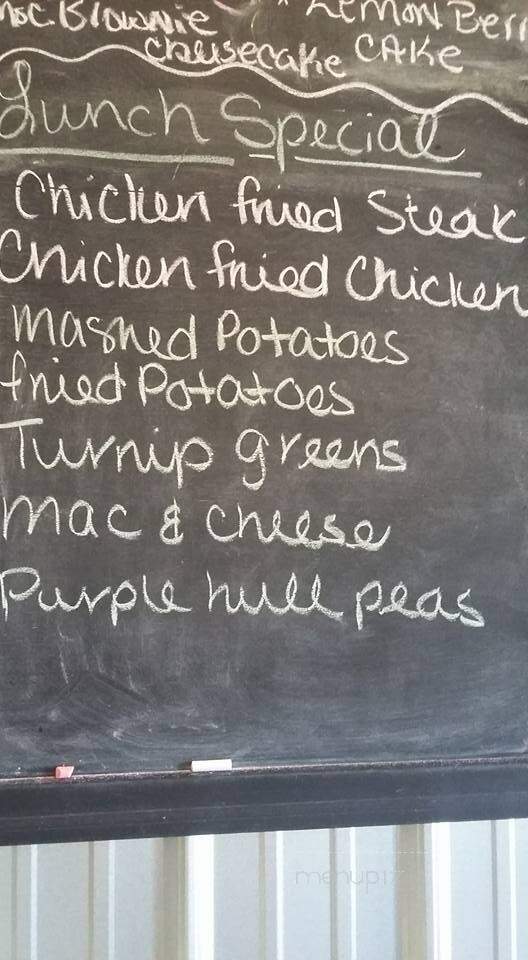 Brownie
Lemon Berr
cheesecake CAKe
Lunch Special
Chicken fried Steak
Chicken fried Chicken
mashed Potatoes
fried Potatoes
Turnip greens
mac & cheese
Purple hull peas
menupix